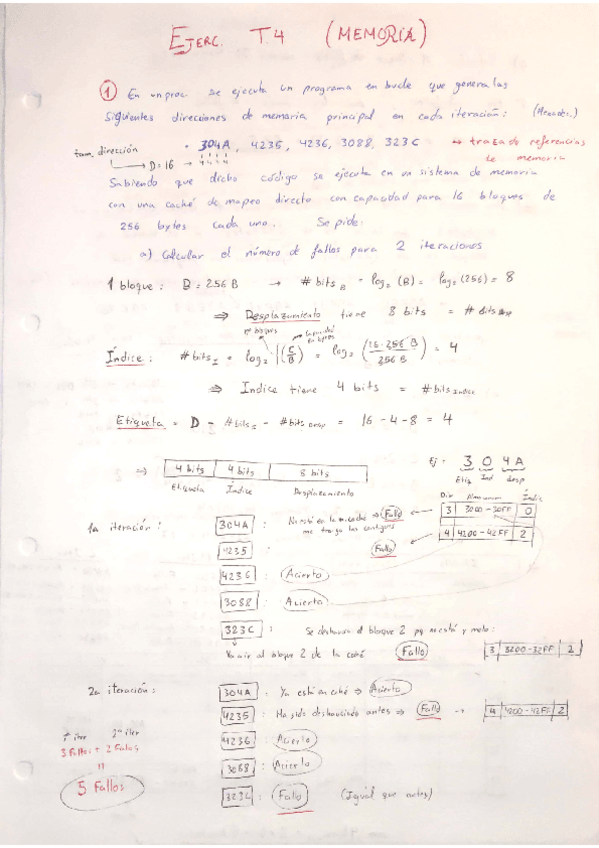 EJERC. T.4 (MEMORIA)
① En un proc. se ejecuta un programa en bucle que genera las
siguientes direcciones de memoria principal en cada iteración: (Hexadec.)
• 304A, 4235, 4236, 3088, 323C → trazado referencias de memoria
tam. dirección → D=16 → 4 4 4 4
Sabiendo que dicho código se ejecuta en un sistema de memoria
con una caché de mapeo directo con capacidad para 16 bloques de
256 bytes cada uno. Se pide:
a) Calcular el número de fallos para 2 iteraciones
1 bloque: B = 256 B → # bits B = log₂ (B) = log₂ (256) = 8
⇒ Desplazamiento tiene 8 bits = # bits desp
nº bloques capacidad en bytes
Índice: # bits I = log₂ (C/B) = log₂ (16·256 B / 256 B) = 4
⇒ Indice tiene 4 bits = # bits indice
Etiqueta = D - # bits - # bits desp = 16 - 4 - 8 = 4
⇒ 4 bits 4 bits 8 bits
Etiqueta Índice Desplazamiento
Ej: 3 0 4A
Etiq Ind desp
Dir Indic
3 3000-30FF 0
4 4200-42FF 2
1a iteración: 304A: No está en la caché → Fallo
me traigo los contiguos
4235: Fallo
4236: Acierto
3088: Acierto
323C: Se destruye el bloque 2 pq no está y meto:
Va a ir al bloque 2 de la caché Fallo 3 3200-32FF 2
2a iteración: 304A: Ya está en caché ⇒ Acierto
4235: Ha sido destruido antes ⇒ Fallo → 4 4200-42FF 2
4236: Acierto
3088: Acierto
323C: Fallo (Igual que antes)
1ª iter 2ª iter
3 Fallos + 2 Fallos
=
5 Fallos